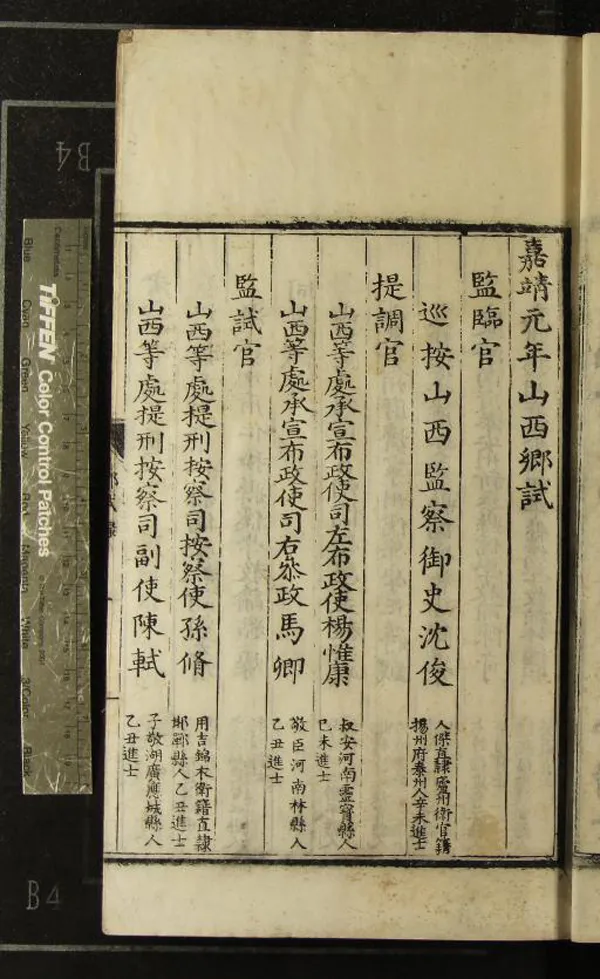 嘉靖元年山西鄉試
監臨官
巡按山西監察御史沈俊
人傑直隸廬州衛官籍
揚州府泰州人辛未進士
提調官
山西等處承宣布政使司左布政使楊惟康
叔安河南靈寶縣人
己未進士
山西等處承宣布政使司右叅政馬卿
敬臣河南林縣人
乙丑進士
監試官
山西等處提刑按察司按察使孫脩
用吉錦衣衛籍直隸
邯鄲縣人乙丑進士
山西等處提刑按察司副使陳軾
子敬湖廣應城縣人
乙丑進士
試錄
B4
B4
TIFFEN Color Control Patches
Blue
Cyan
Green
Yellow
Red
Magenta
White
3/Color
Black